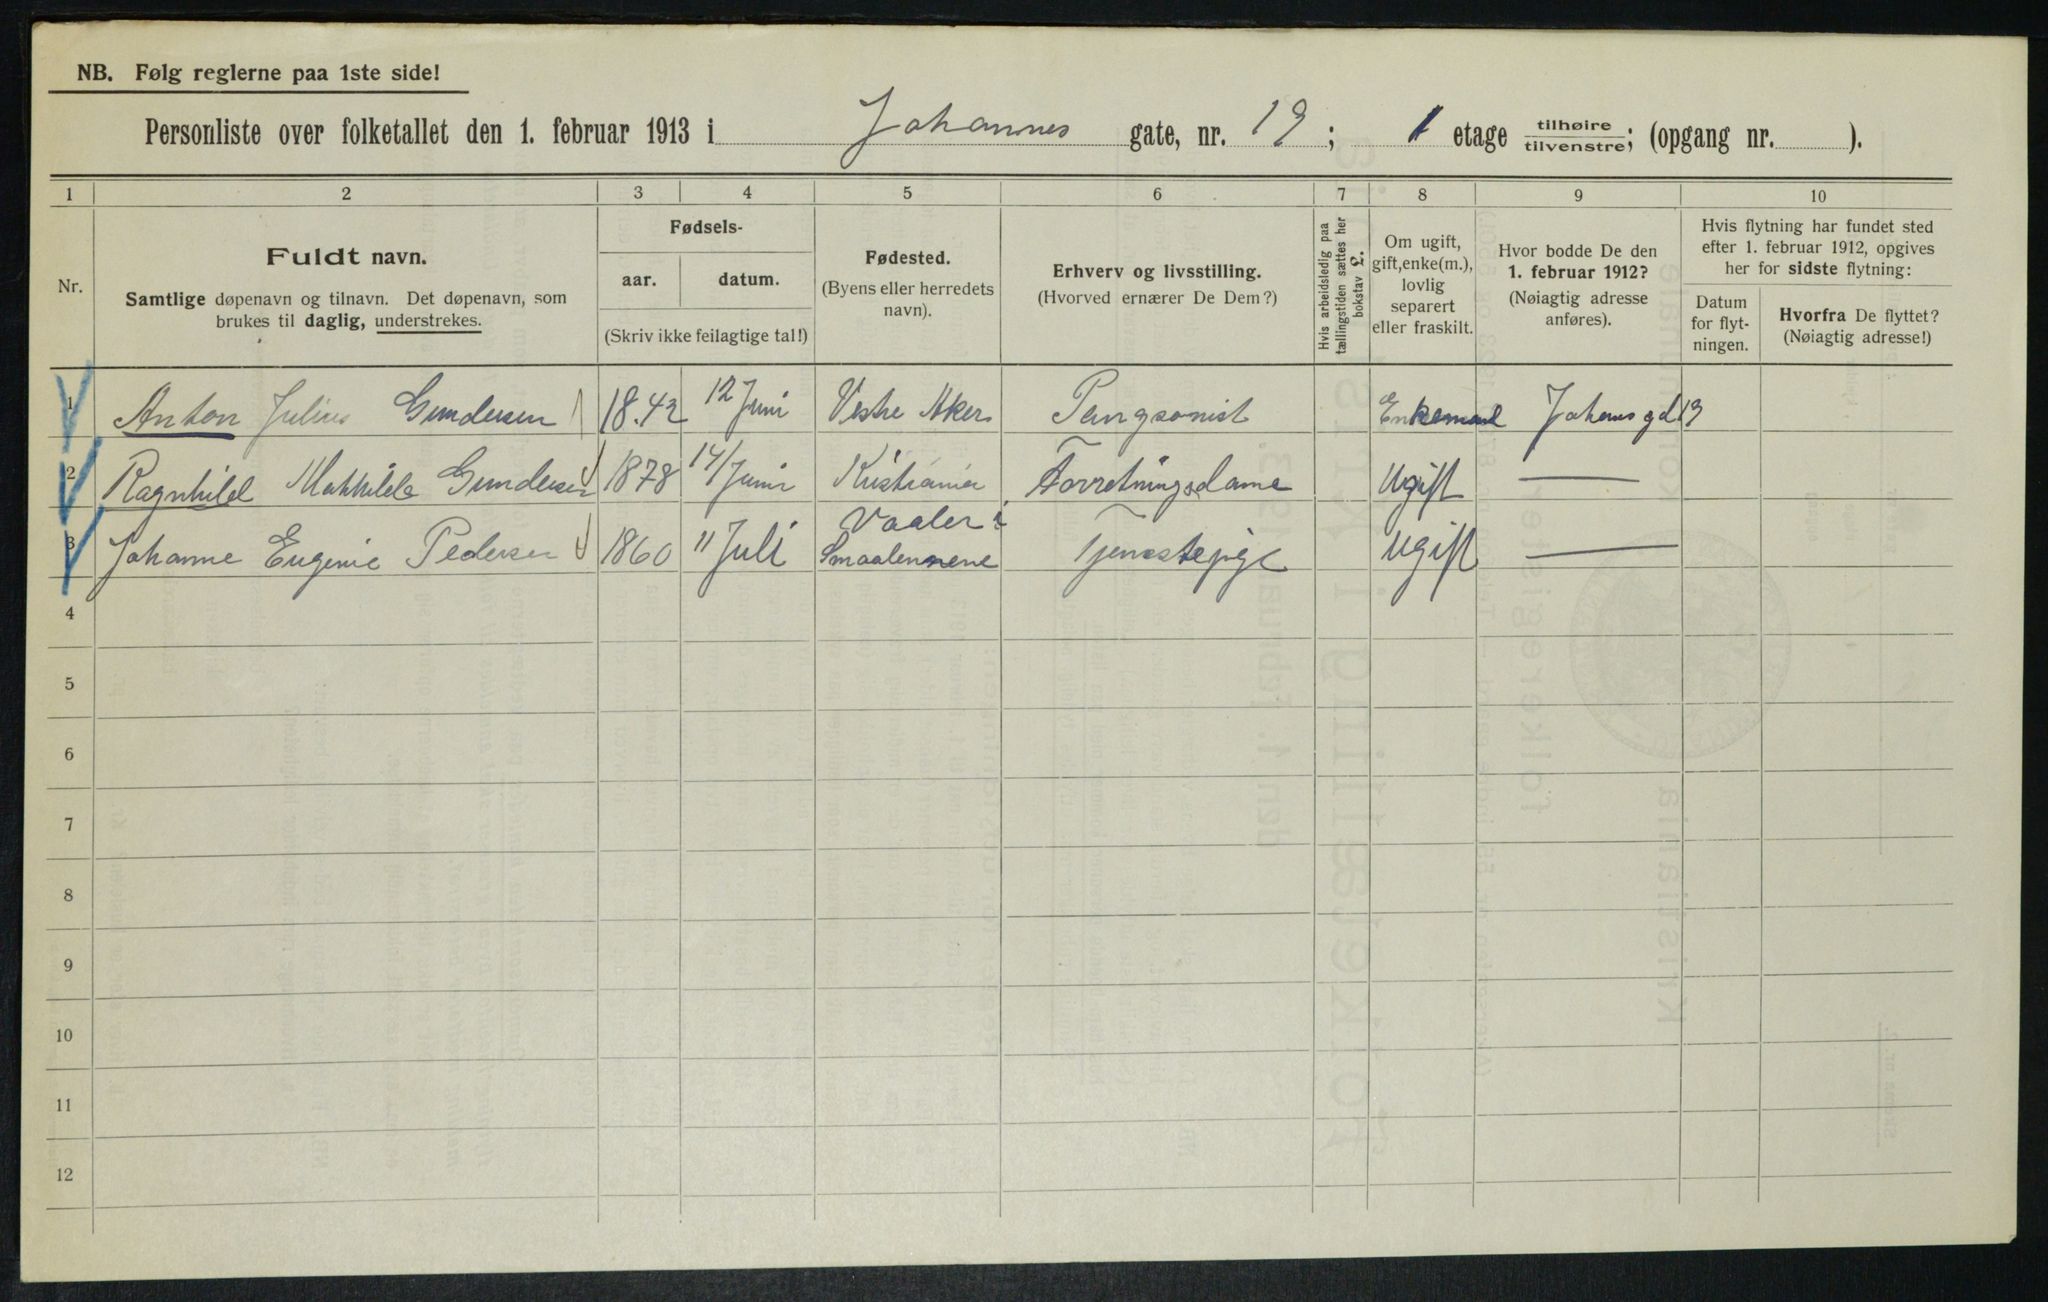 NB. Følg reglerne paa 1ste side!
Personliste over folketallet den 1. februar 1913 i Johannes gate, nr. 19; 1 etage tilhøire/tilvenstre; (opgang nr. ).
1 2 3 4 5 6 7 8 9 10
Nr.
Fuldt navn.
Samtlige døpenavn og tilnavn. Det døpenavn, som
brukes til daglig, understrekes.
Fødsels-
aar. datum.
(Skriv ikke feilagtige tal!)
Fødested.
(Byens eller herredets
navn).
Erhverv og livsstilling.
(Hvorved ernærer De Dem?)
Hvis arbeidsledig paa
tællingstiden sættes her
bokstav L.
Om ugift,
gift, enke(m.),
lovlig
separert
eller fraskilt.
Hvor bodde De den
1. februar 1912?
(Nøiagtig adresse
anføres).
Hvis flytning har fundet sted
efter 1. februar 1912, opgives
her for sidste flytning:
Datum
for flyt-
ningen.
Hvorfra De flyttet?
(Nøiagtig adresse!)
1 Anton Julius Gundersen 18.42 12 Juni Vestre Aker Pangsonist Enkemand Johansgd 19
2 Ragnhild Mathilde Gundersen 1878 14/Juni Kristiania Forretningsdame Ugift —
3 Johanne Eugenie Pedersen 1860 11 Juli Vaaler i
Smaalennene Tjenestepige Ugift —
4
5
6
7
8
9
10
11
12